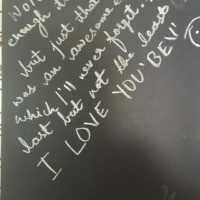 enough
but just that
was an awesome
which I'll never forget..
last but not the least
I LOVE YOU BEV!